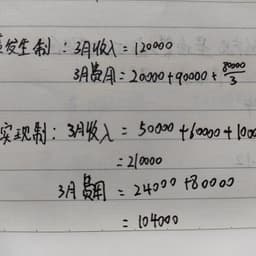 发生制：3月收入 = 120000
3月费用 = 20000 + 90000 + 80000/3
实现制：3月收入 = 50000 + 60000 + 1000
= 210000
3月费用 = 24000 + 80000
= 104000